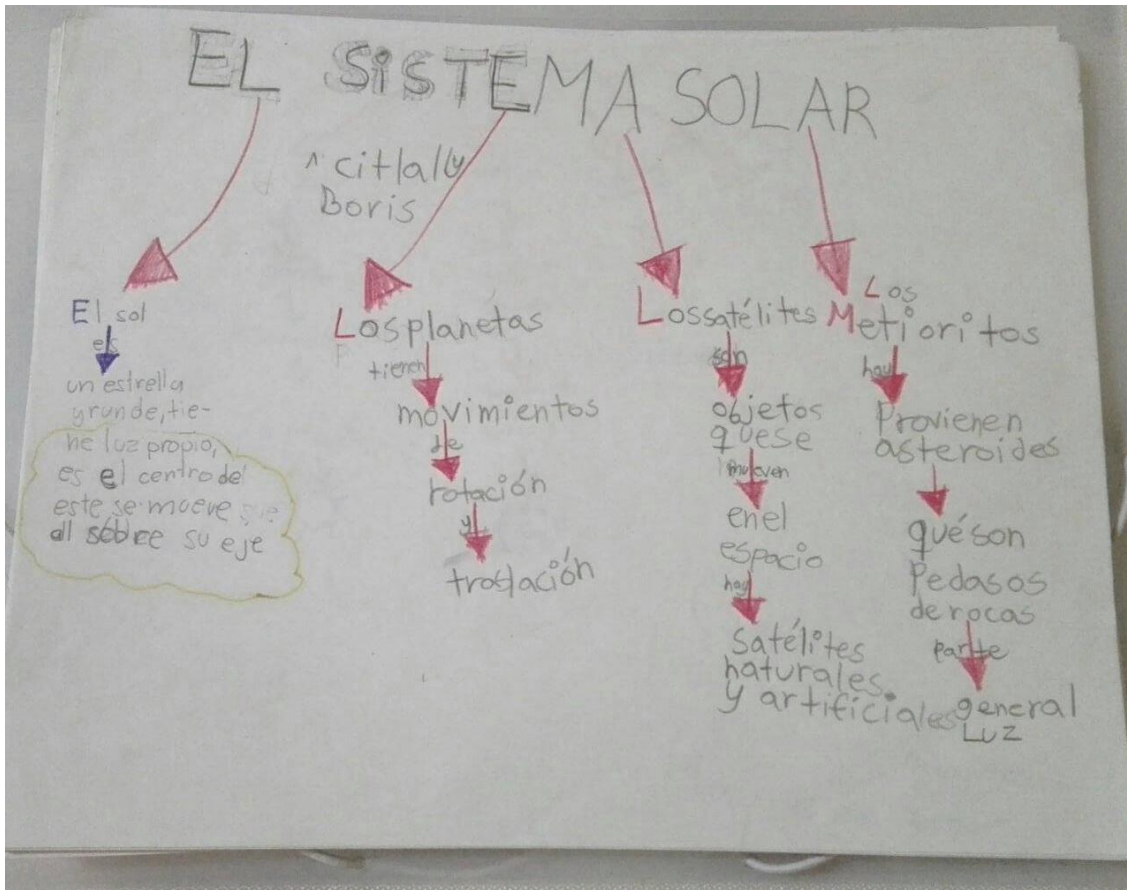 EL SiSTEMA SOLAR
citlaly
Boris
El sol
es
un estrella
grunde, tie-
ne luz propio,
es el centro del
este se mueve
all sobre su eje
Los planetas
tienen
movimientos
de
rotación
y
traslación
Los satélites
son
objetos
que se
mueven
en el
espacio
hay
Satélites
naturales
y artificiales
Los
Metioritos
hay
Provienen
asteroides
qué son
Pedasos
de rocas
parte
general
Luz